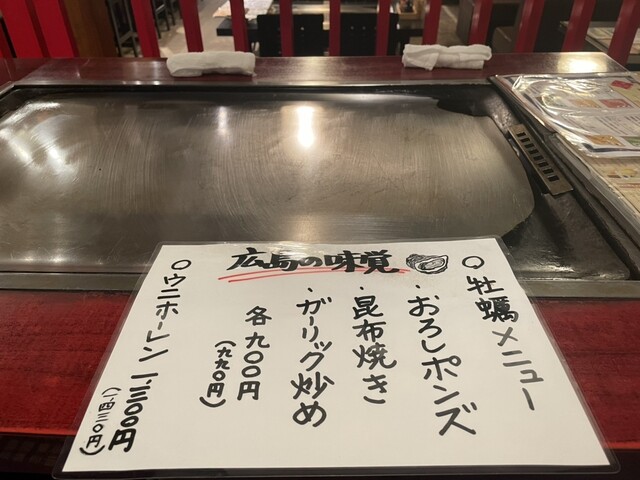 広島の味覚
○牡蠣メニュー
・おろしポンズ
・昆布焼き
・ガーリック炒め
各九〇〇円
(九九〇円)
○ウニホーレン 一、三〇〇円
(一四三〇円)